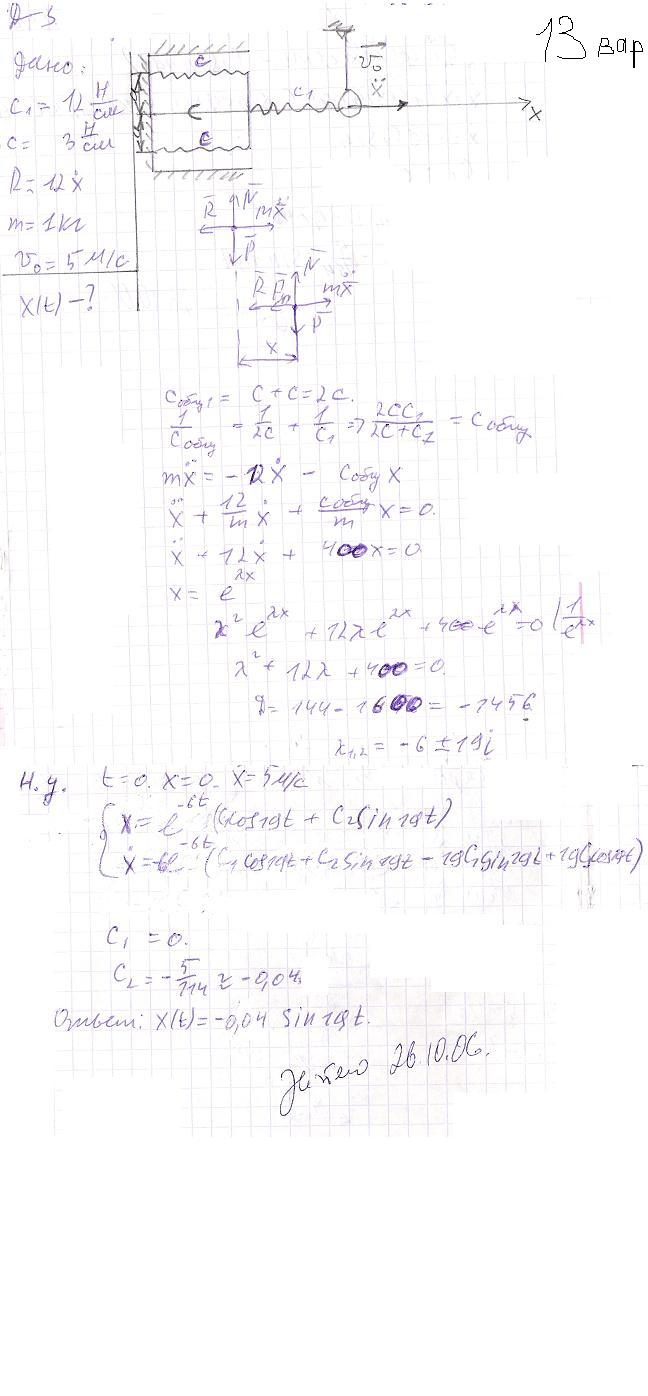 Д-3
13 вар
Дано:
c₁ = 12 Н/см
c = 3 Н/см
R = 12ẋ
m = 1 кг
v₀ = 5 м/с
x(t) - ?
c
c
c
c₁
v̄₀
ẍ
x
R̄ N̄ mẍ
P̄
R̄ P̄ N̄ mẍ
P̄
x
Cобщ₁ = c + c = 2c.
1/Cобщ = 1/2c + 1/c₁ ⇒ 2cc₁/2c+c₁ = Cобщ
mẍ = -12ẋ - Cобщ x
ẍ + 12/m ẋ + Cобщ/m x = 0.
ẍ + 12ẋ + 400x = 0
x = e^λx
λ² e^λx + 12λe^λx + 400e^λx = 0 | 1/e^λx
λ² + 12λ + 400 = 0.
D = 144 - 1600 = -1456
λ₁,₂ = -6 ± 19i
Н.у. t = 0. x = 0. ẋ = 5 м/с
x = e^-6t (C₁cos19t + C₂sin19t)
ẋ = -6e^-6t (C₁cos19t + C₂sin19t - 19C₁sin19t + 19C₂cos19t)
C₁ = 0.
C₂ = -5/114 ≈ -0,04.
Ответ: x(t) = -0,04 sin19t.
26.10.06.